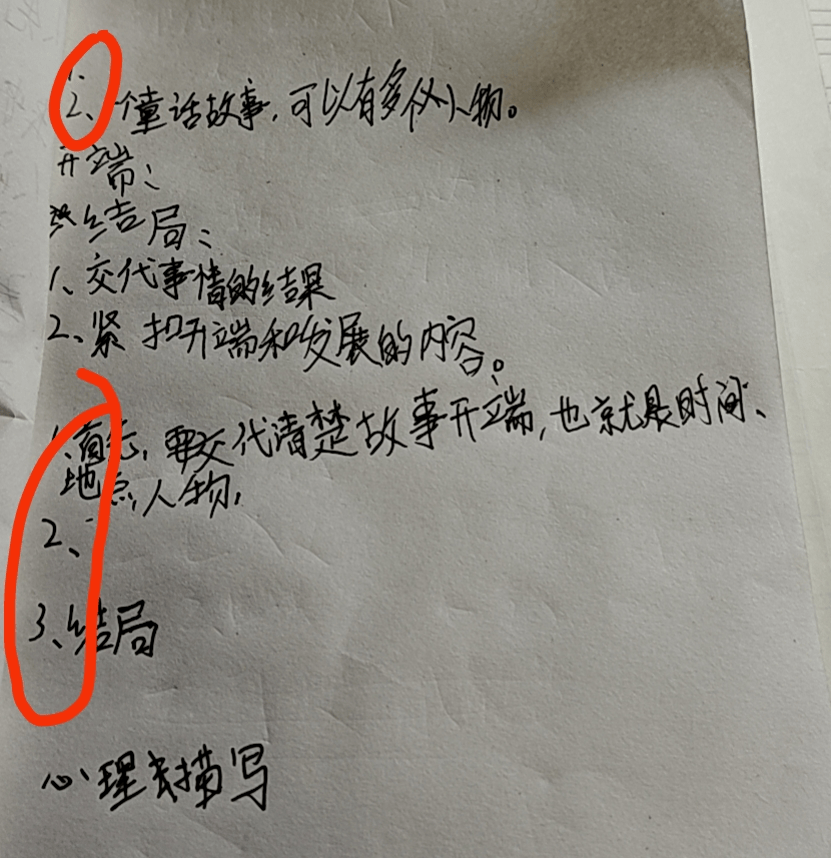 1.
2、一个童话故事，可以有多个人物。
开端：
结局：
1、交代事情的结果
2、紧扣开端和发展的内容。
1、首先，要交代清楚故事开端，也就是时间、
地点，人物，
2、
3、结局
心理描写